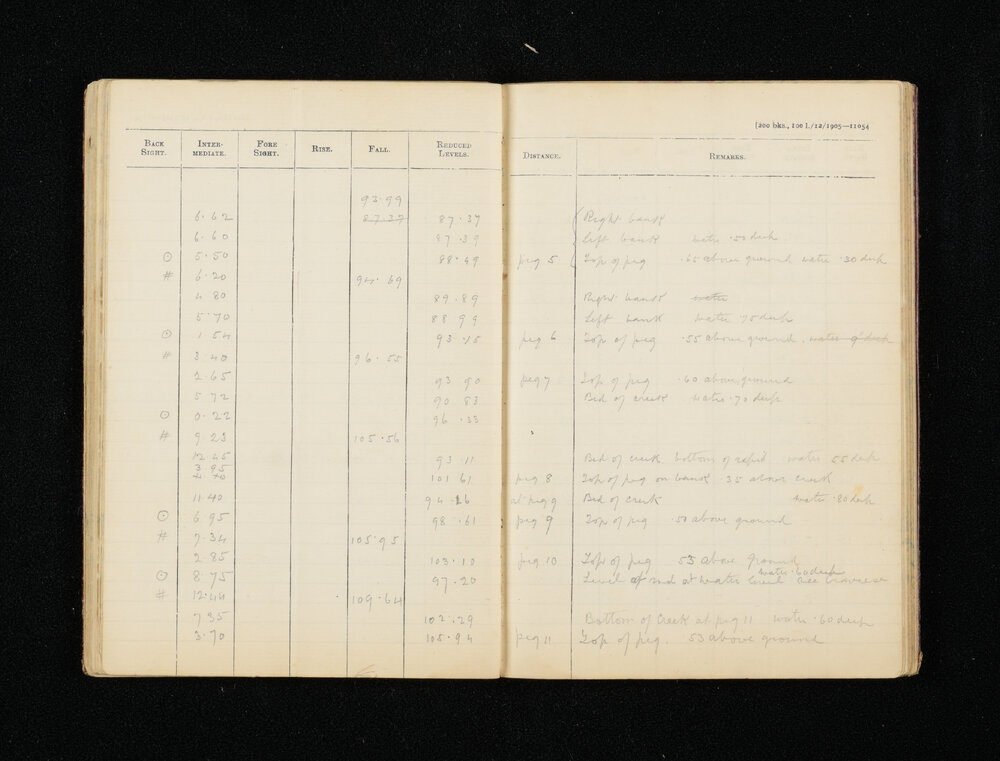 [200 bks., 100 l./12/1905—11054
BACK SIGHT. INTER-MEDIATE. FORE SIGHT. RISE. FALL. REDUCED LEVELS. DISTANCE. REMARKS.
93.99
6.62 87.37 87.37 Right bank
6.60 87.39 Left bank water .50 deep
⊙ 5.50 88.49 peg 5 Top of peg .65 above ground water .30 deep
# 6.20 94.69
4 80 89.89 Right bank water
5.70 88 99 Left bank water .75 deep
⊙ 1.54 93.15 peg 6 Top of peg .55 above ground, water deep
# 3.40 96.55
2.65 93 90 peg 7 Top of peg .60 above ground
5 72 90 83 Bed of creek water .70 deep
⊙ 0.22 96.33
# 9 23 105.56
12.45 93.11 Bed of creek bottom of rapid water 55 deep
3 95 101 61 peg 8 Top of peg on bank 35 above creek
11.40 94.16 at peg 9 Bed of creek water .80 deep
⊙ 6.95 98.61 peg 9 Top of peg .50 above ground
# 7.34 105.95
2.85 103.10 peg 10 Top of peg 53 above ground
water .60 deep
⊙ 8.75 97.20 Level at water level see traverse
# 12.44 109.64
7.35 102.29 Bottom of Creek at peg 11 water .60 deep
3.70 105.94 peg 11 Top of peg. 53 above ground